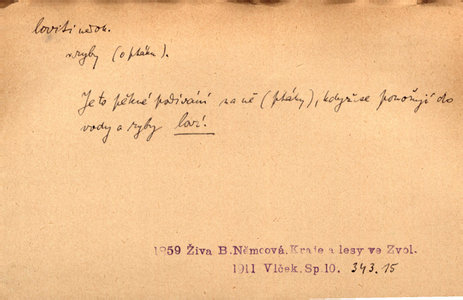 loviti nedok.
ryby (o ptáku).
Je to pěkné podívání na ně (ptáky), když se ponořují do
vody a ryby loví.
1859 Živa B. Němcová, Kraje a lesy ve Zvol.
1911 Vlček. Sp. 10. 343.15